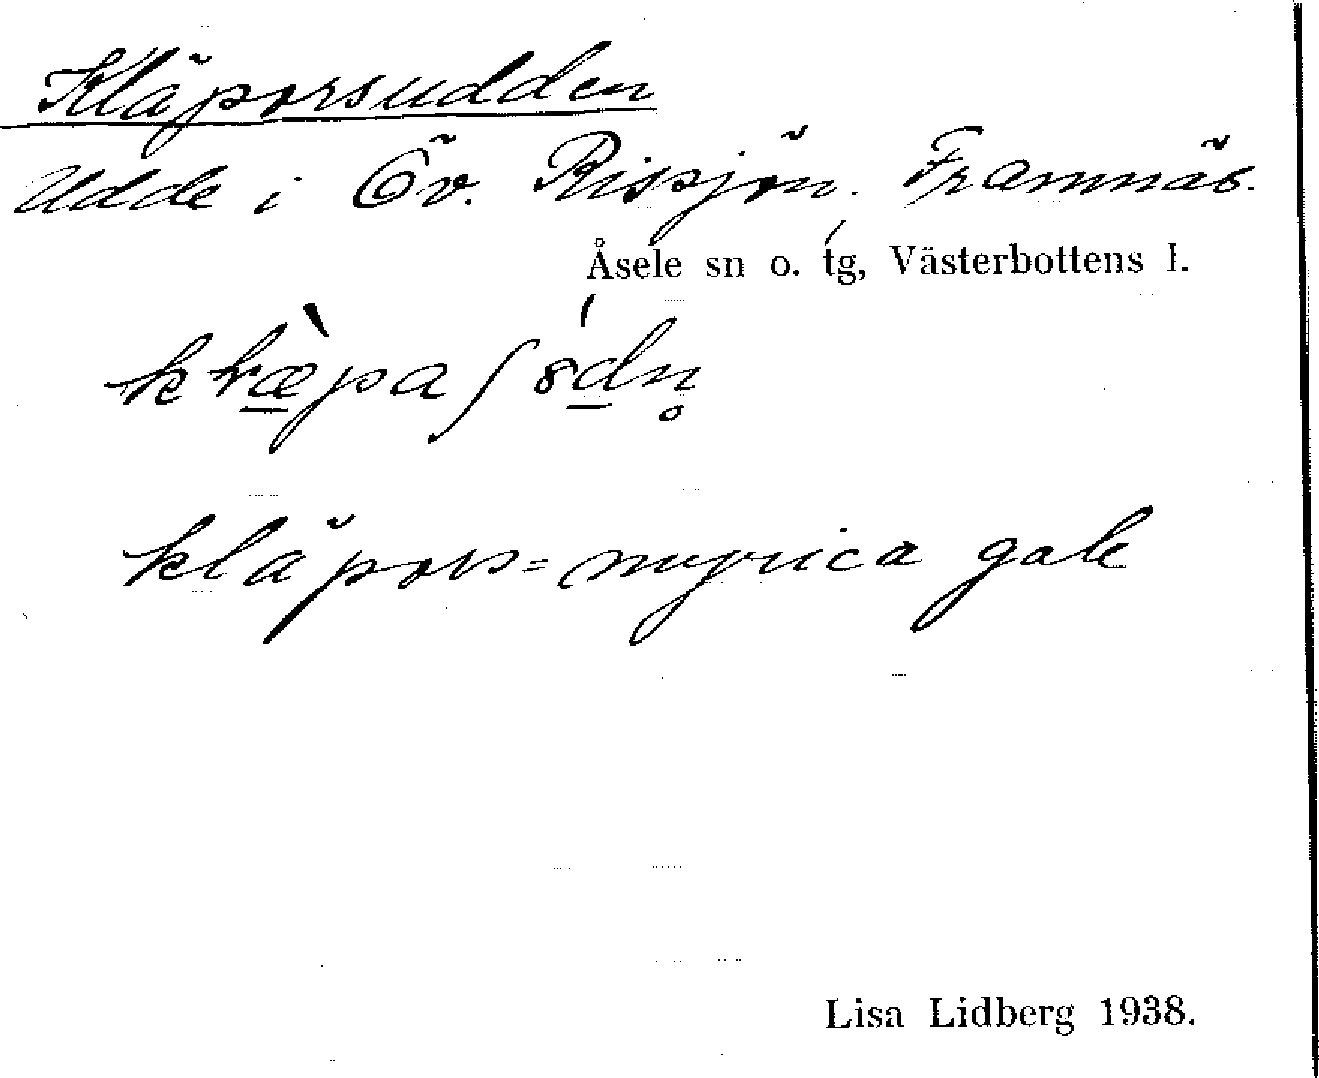 Kläporsudden
Udde i Öv. Rissjön. Framnäs.
Åsele sn o. tg, Västerbottens l.
kläpors = myrica gale
Lisa Lidberg 1938.